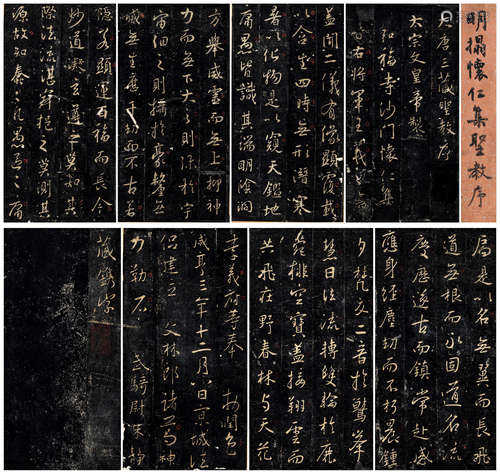 明搨懷仁集聖教序
大唐三藏聖教序
太宗文皇帝製
弘福寺沙門懷仁集
晉右將軍王羲之書
盖聞二儀有像顯覆載
以含生四時無形潛寒
暑以化物是以窺天鑑地
庸愚皆識其端明陰洞
方舉威靈而無上抑神
力而無下大之則弥於宇
宙細之則攝於豪釐無
滅無生歷千劫而不古若
隱若顯運百福而長今
妙道凝玄遵之莫知其
際法流湛寂挹之莫測其
源故知蠢蠢凡愚區區庸
扃是以名無翼而長飛
道無根而永固道名流
慶歷遂古而鎮常赴感
應身經塵劫而不朽晨鍾
夕梵交二音於鷲峯
慧日法流轉雙輪於鹿
菀排空寶盖接翔雲而
共飛莊野春林與天花
李義府等奉 敕潤色
咸亨三年十二月八日京城法
侶建立 文林郎諸葛神
力勒石 武騎尉朱靜
藏鐫字